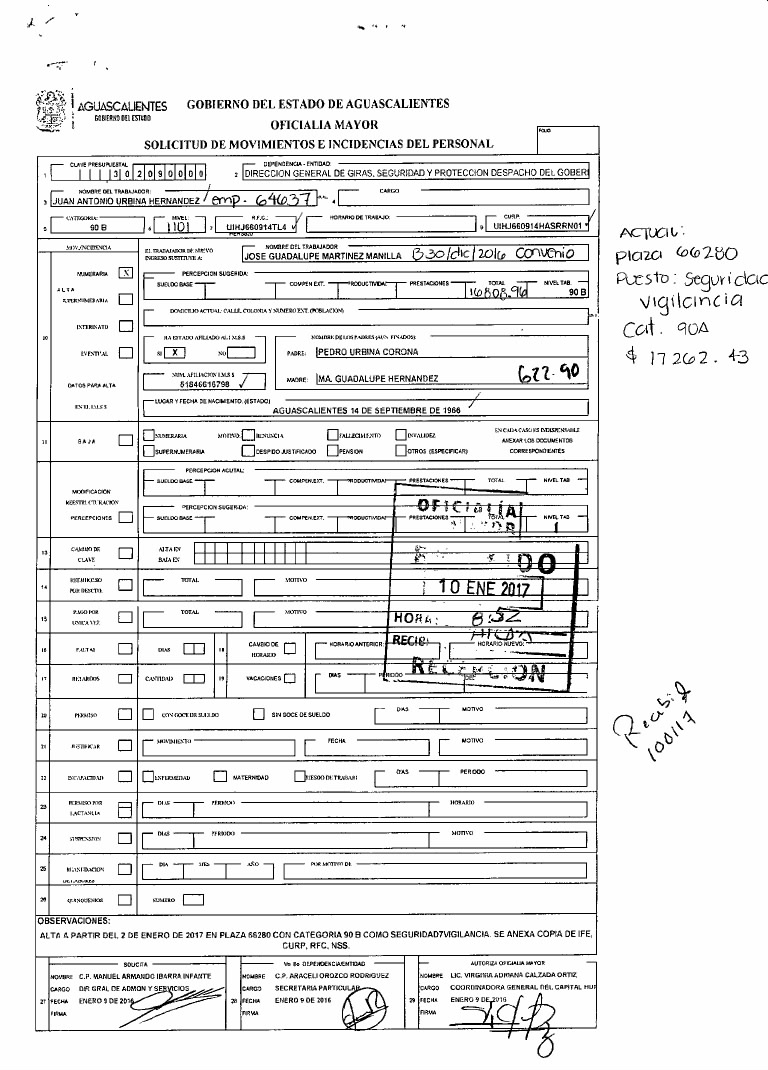 AGUASCALIENTES
GOBIERNO DEL ESTADO
GOBIERNO DEL ESTADO DE AGUASCALIENTES
OFICIALIA MAYOR
SOLICITUD DE MOVIMIENTOS E INCIDENCIAS DEL PERSONAL
FOLIO
CLAVE PRESUPUESTAL DEPENDENCIA - ENTIDAD:
1 3 0 2 0 9 0 0 0 0 2 DIRECCION GENERAL DE GIRAS, SEGURIDAD Y PROTECCION DESPACHO DEL GOBER
NOMBRE DEL TRABAJADOR: CARGO
3 JUAN ANTONIO URBINA HERNANDEZ / emp. 64637 4
CATEGORIA: NIVEL: R.F.C.: HORARIO DE TRABAJO: CURP:
5 90 B 6 1101 7 UIHJ660914TL4 9 UIHJ660914HASRRN01
ACTUAL:
Plaza 66280
Puesto: Seguridad
vigilancia
Cat. 90A
$ 17262.43
MOV./INCIDENCIA EL TRABAJADOR DE NUEVO INGRESO SUSTITUYE A: NOMBRE DEL TRABAJADOR
JOSE GUADALUPE MARTINEZ MANILLA B 30/dic/2016 Convenio
NUMERARIA X PERCEPCION SUGERIDA:
SUELDO BASE COMPEN EXT. PRODUCTIVIDAD PRESTACIONES TOTAL NIVEL TAB.
16808.96 90 B
ALTA
SUPERNUMERARIA
DOMICILIO ACTUAL: CALLE, COLONIA Y NUMERO EXT. (POBLACION)
INTERINATO
10 HA ESTADO AFILIADO AL I.M.S.S NOMBRE DE LOS PADRES (AUN FINADOS):
EVENTUAL SI X NO PADRE: PEDRO URBINA CORONA
NUM. AFILIACION I.M.S.S MADRE: MA. GUADALUPE HERNANDEZ 622-90
DATOS PARA ALTA 51846616798
EN EL I.M.S.S LUGAR Y FECHA DE NACIMIENTO. (ESTADO)
AGUASCALIENTES 14 DE SEPTIEMBRE DE 1966
11 BAJA NUMERARIA MOTIVO: RENUNCIA FALLECIMIENTO INVALIDEZ EN CADA CASO ES INDISPENSABLE
ANEXAR LOS DOCUMENTOS
SUPERNUMERARIA DESPIDO JUSTIFICADO PENSION OTROS (ESPECIFICAR) CORRESPONDIENTES
PERCEPCION ACUTAL:
SUELDO BASE COMPEN.EXT. PRODUCTIVIDAD PRESTACIONES TOTAL NIVEL TAB
MODIFICACIÓN
REESTRUCTURACION
PERCEPCIONES
PERCEPCION SUGERIDA:
SUELDO BASE COMPEN.EXT. PRODUCTIVIDAD PRESTACIONES TOTAL NIVEL TAB
OFICIALÍA
10 ENE 2017
HORA: 8:52
RECIBI:
RECEPCION
13 CAMBIO DE CLAVE ALTA EN
BAJA EN
14 REEMBOLSO POR DESCTO. TOTAL MOTIVO
15 PAGO POR UNICA VEZ TOTAL MOTIVO
16 FALTAS DIAS 18 CAMBIO DE HORARIO HORARIO ANTERIOR: HORARIO NUEVO:
17 RETARDOS CANTIDAD 19 VACACIONES DIAS PERIODO
20 PERMISO CON GOCE DE SUELDO SIN GOCE DE SUELDO DIAS MOTIVO
21 JUSTIFICAR MOVIMIENTO FECHA: MOTIVO
Recibi
100117
22 INCAPACIDAD ENFERMEDAD MATERNIDAD RIESGO DE TRABAJO DIAS PERIODO
23 PERMISO POR LACTANCIA DIAS PERIODO HORARIO
24 SUSPENSION DIAS PERIODO MOTIVO
25 REANUDACION DIA MES AÑO POR MOTIVO DE
26 QUINQUENIOS NUMERO
OBSERVACIONES:
ALTA A PARTIR DEL 2 DE ENERO DE 2017 EN PLAZA 66280 CON CATEGORIA 90 B COMO SEGURIDAD7VIGILANCIA. SE ANEXA COPIA DE IFE,
CURP, RFC, NSS.
SOLICITA Vo Bo DEPENDENCIA/ENTIDAD AUTORIZA OFICIALIA MAYOR
NOMBRE C.P. MANUEL ARMANDO IBARRA INFANTE NOMBRE C.P. ARACELI OROZCO RODRIGUEZ NOMBRE LIC. VIRGINIA ADRIANA CALZADA ORTIZ,
CARGO DIR GRAL DE ADMON Y SERVICIOS CARGO SECRETARIA PARTICULAR CARGO COORDINADORA GENERAL DEL CAPITAL HUM
27 FECHA ENERO 9 DE 2016 28 FECHA ENERO 9 DE 2016 29 FECHA ENERO 9 DE 2016
FIRMA FIRMA FIRMA